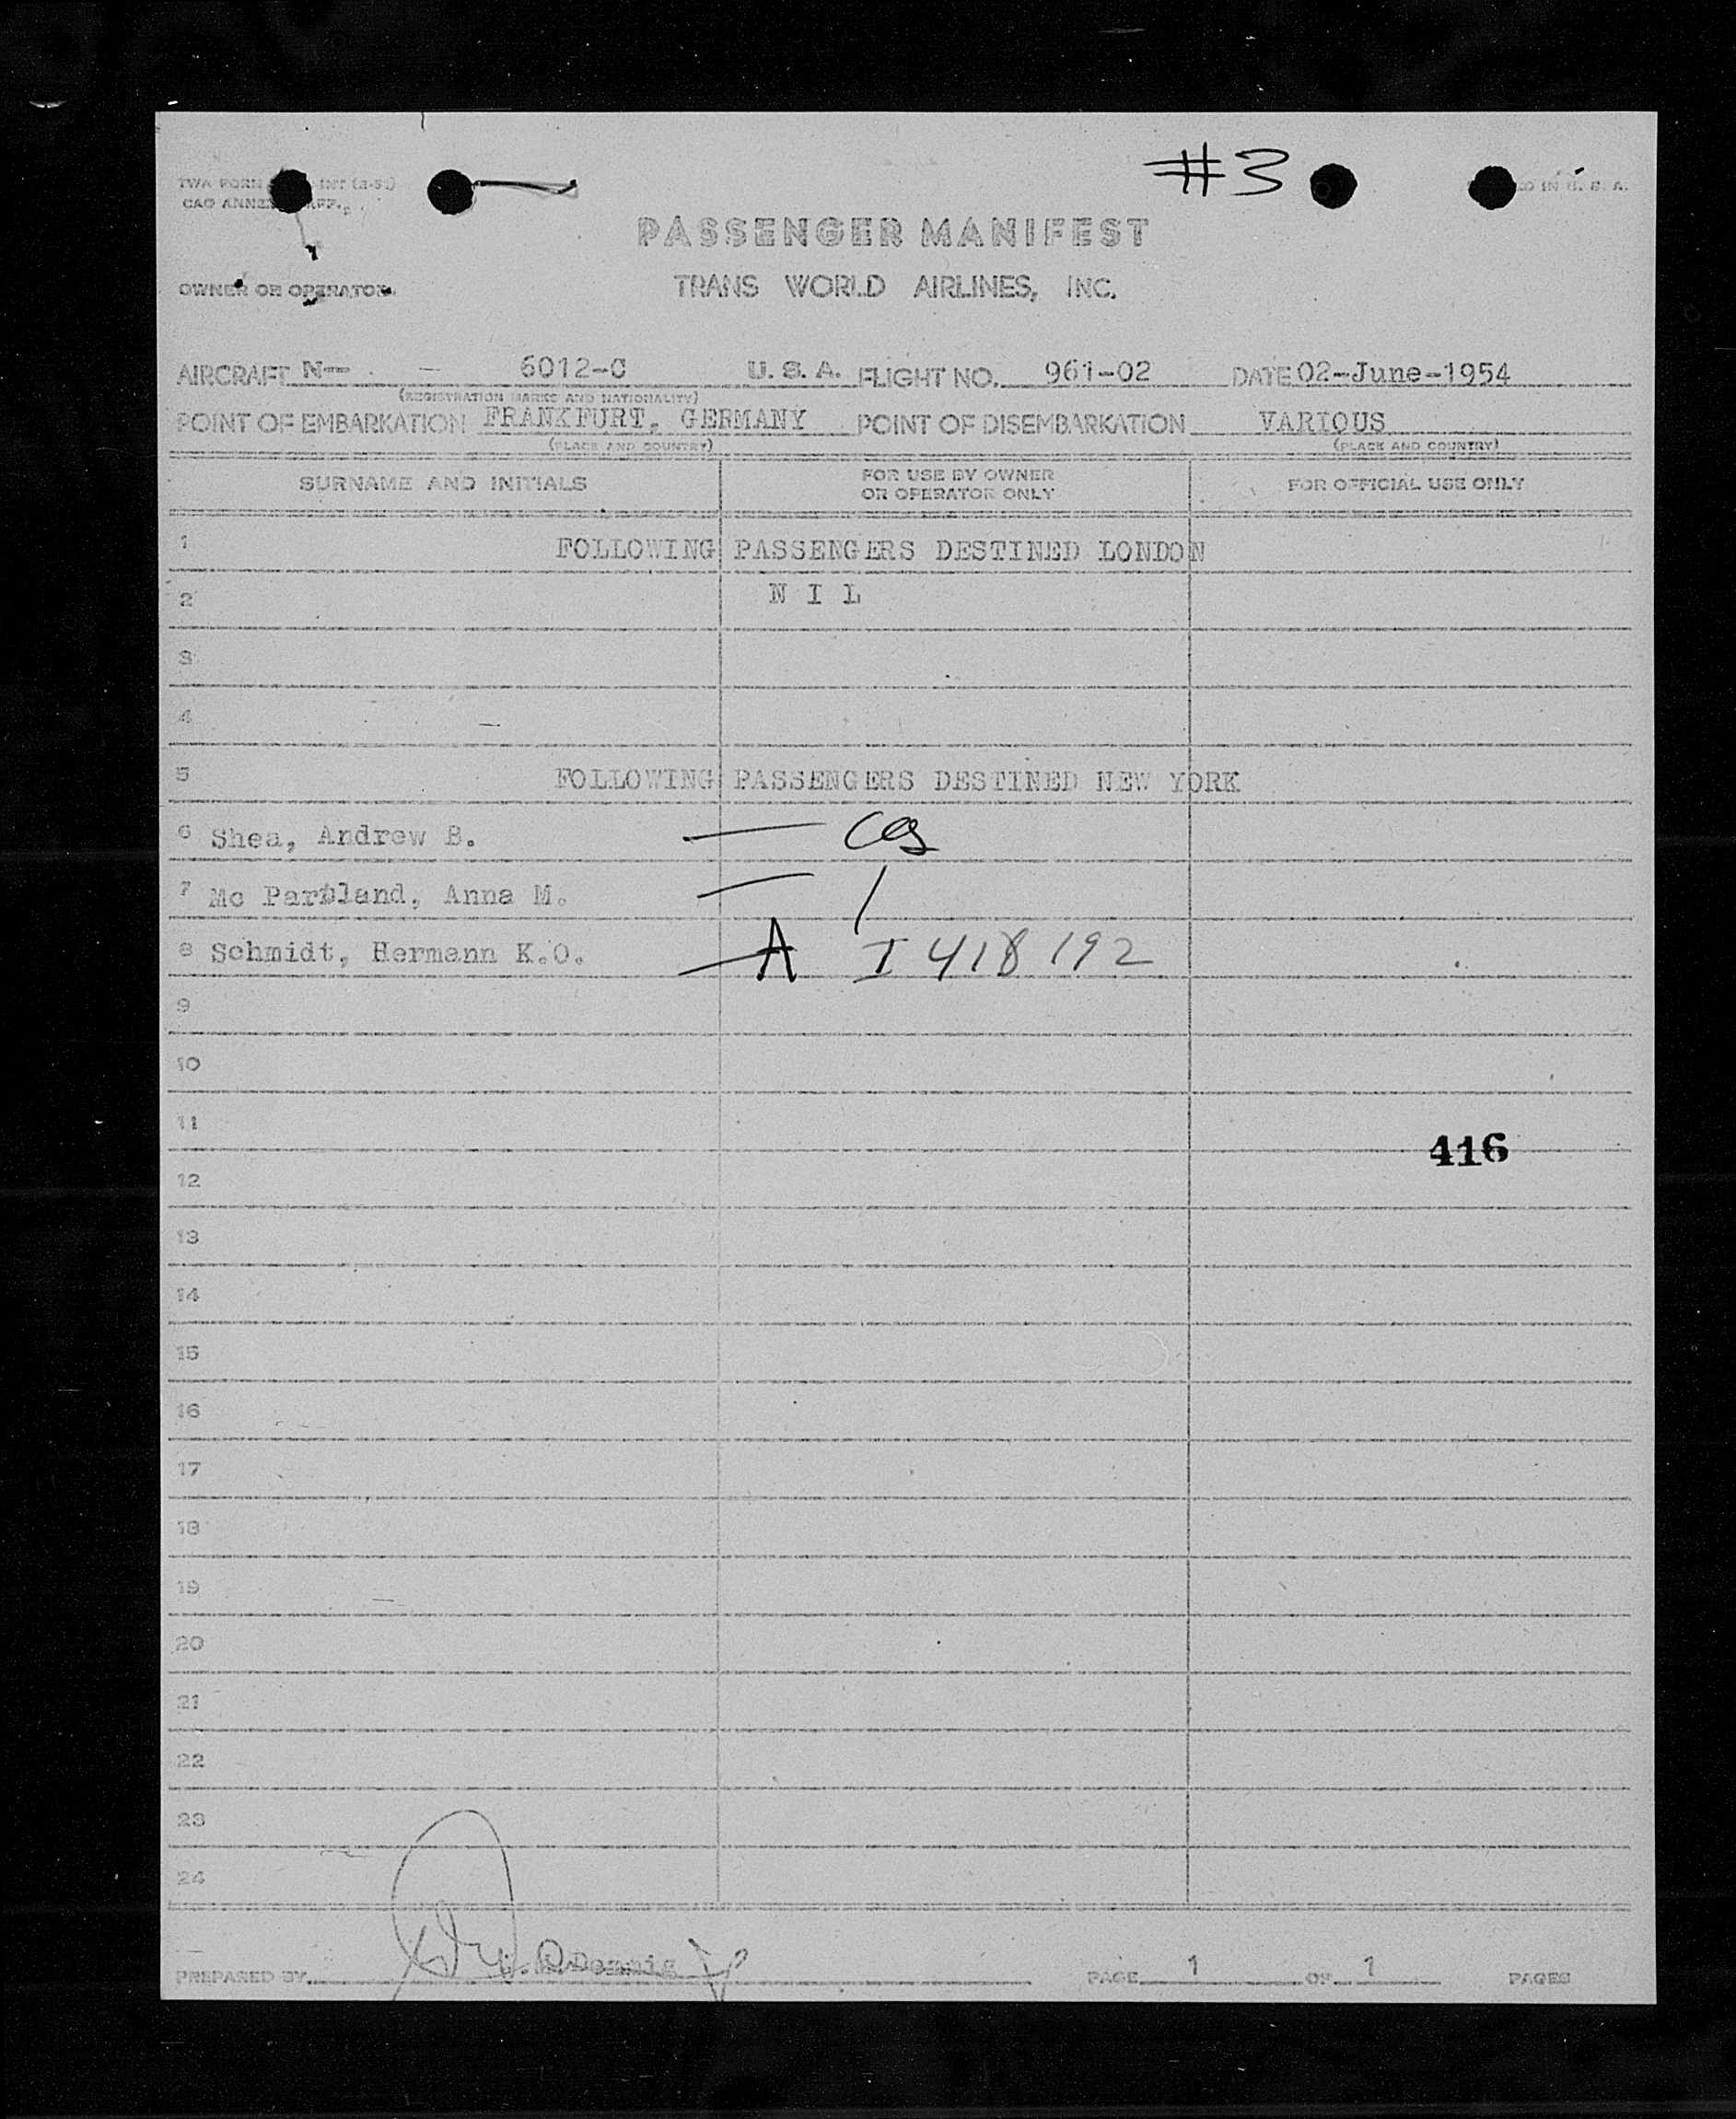 #3
TWA FORM INT (2-51)
CAO ANNEX
IN U. S. A.
PASSENGER MANIFEST
OWNER OR OPERATOR
TRANS WORLD AIRLINES, INC.
AIRCRAFT N-- - 6012-C U. S. A. FLIGHT NO. 961-02 DATE 02-June-1954
(REGISTRATION MARKS AND NATIONALITY)
POINT OF EMBARKATION FRANKFURT, GERMANY POINT OF DISEMBARKATION VARIOUS
(PLACE AND COUNTRY) (PLACE AND COUNTRY)
SURNAME AND INITIALS FOR USE BY OWNER OR OPERATOR ONLY FOR OFFICIAL USE ONLY
1 FOLLOWING PASSENGERS DESTINED LONDON
2 N I L
3
4
5 FOLLOWING PASSENGERS DESTINED NEW YORK
6 Shea, Andrew B.
7 Mc Partland, Anna M.
8 Schmidt, Hermann K.O. A I 418 192
9
10
11
416
12
13
14
15
16
17
18
19
20
21
22
23
24
PREPARED BY PAGE 1 OF 1 PAGES